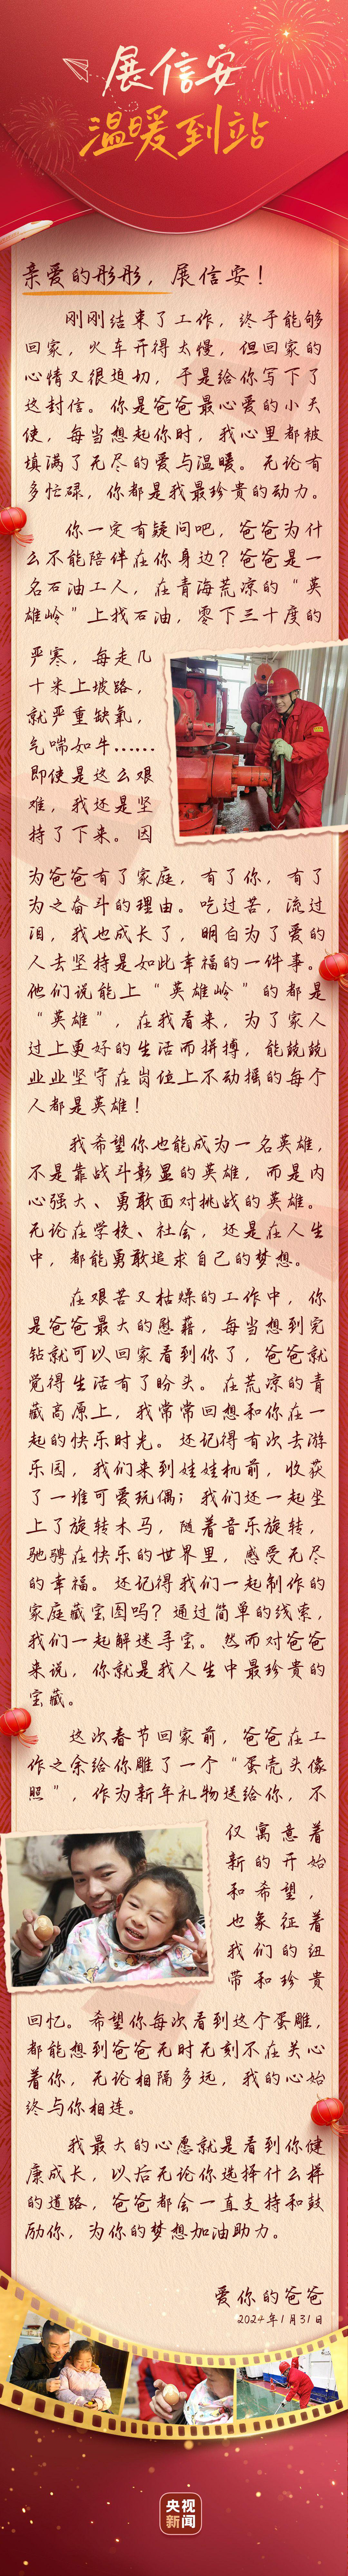 展信安
温暖到站
亲爱的彤彤，展信安！
刚刚结束了工作，终于能够
回家，火车开得太慢，但回家的
心情又很迫切，于是给你写下了
这封信。你是爸爸最心爱的小天
使，每当想起你时，我心里都被
填满了无尽的爱与温暖。无论有
多忙碌，你都是我最珍贵的动力。
你一定有疑问吧，爸爸为什
么不能陪伴在你身边？爸爸是一
名石油工人，在青海荒凉的“英
雄岭”上找石油，零下三十度的
严寒，每走几
十米上坡路，
就严重缺氧，
气喘如牛……
即使是这么艰
难，我还是坚
持了下来。因
为爸爸有了家庭，有了你，有了
为之奋斗的理由。吃过苦，流过
泪，我也成长了，明白为了爱的
人去坚持是如此幸福的一件事。
他们说能上“英雄岭”的都是
“英雄”，在我看来，为了家人
过上更好的生活而拼搏，能兢兢
业业坚守在岗位上不动摇的每个
人都是英雄！
我希望你也能成为一名英雄，
不是靠战斗彰显的英雄，而是内
心强大、勇敢面对挑战的英雄。
无论在学校、社会，还是在人生
中，都能勇敢追求自己的梦想。
在艰苦又枯燥的工作中，你
是爸爸最大的慰藉，每当想到完
钻就可以回家看到你了，爸爸就
觉得生活有了盼头。在荒凉的青
藏高原上，我常常回想和你在一
起的快乐时光。还记得有次去游
乐园，我们来到娃娃机前，收获
了一堆可爱玩偶；我们还一起坐
上了旋转木马，随着音乐旋转，
驰骋在快乐的世界里，感受无尽
的幸福。还记得我们一起制作的
家庭藏宝图吗？通过简单的线索，
我们一起解迷寻宝。然而对爸爸
来说，你就是我人生中最珍贵的
宝藏。
这次春节回家前，爸爸在工
作之余给你雕了一个“蛋壳头像
照”，作为新年礼物送给你，不
仅寓意着
新的开始
和希望，
也象征着
我们的纽
带和珍贵
回忆。希望你每次看到这个蛋雕，
都能想到爸爸无时无刻不在关心
着你，无论相隔多远，我的心始
终与你相连。
我最大的心愿就是看到你健
康成长，以后无论你选择什么样
的道路，爸爸都会一直支持和鼓
励你，为你的梦想加油助力。
爱你的爸爸
2024年1月31日
央视
新闻